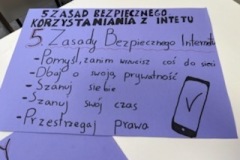 5 ZASAD BEZPIECZNEGO
KORZYSTANIAMIA Z INTETU
5. Zasady Bezpiecznego Internetu
- Pomyśl, zanim wrzucisz coś do sieci
- Dbaj o swoją prywatność
- Szanuj siebie
- Szanuj swój czas
- Przestrzegaj prawa